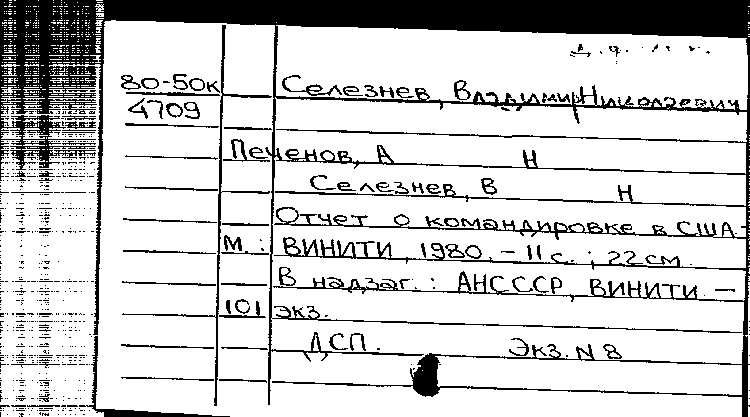 80-50к Селезнев, Владимир Николаевич
4709
Печенов, А Н
Селезнев, В Н
Отчет о командировке в США.-
М. : ВИНИТИ, 1980. - 11 с. ; 22 см.
В надзаг. : АНСССР, ВИНИТИ. -
101 экз.
ДСП. Экз. N 8